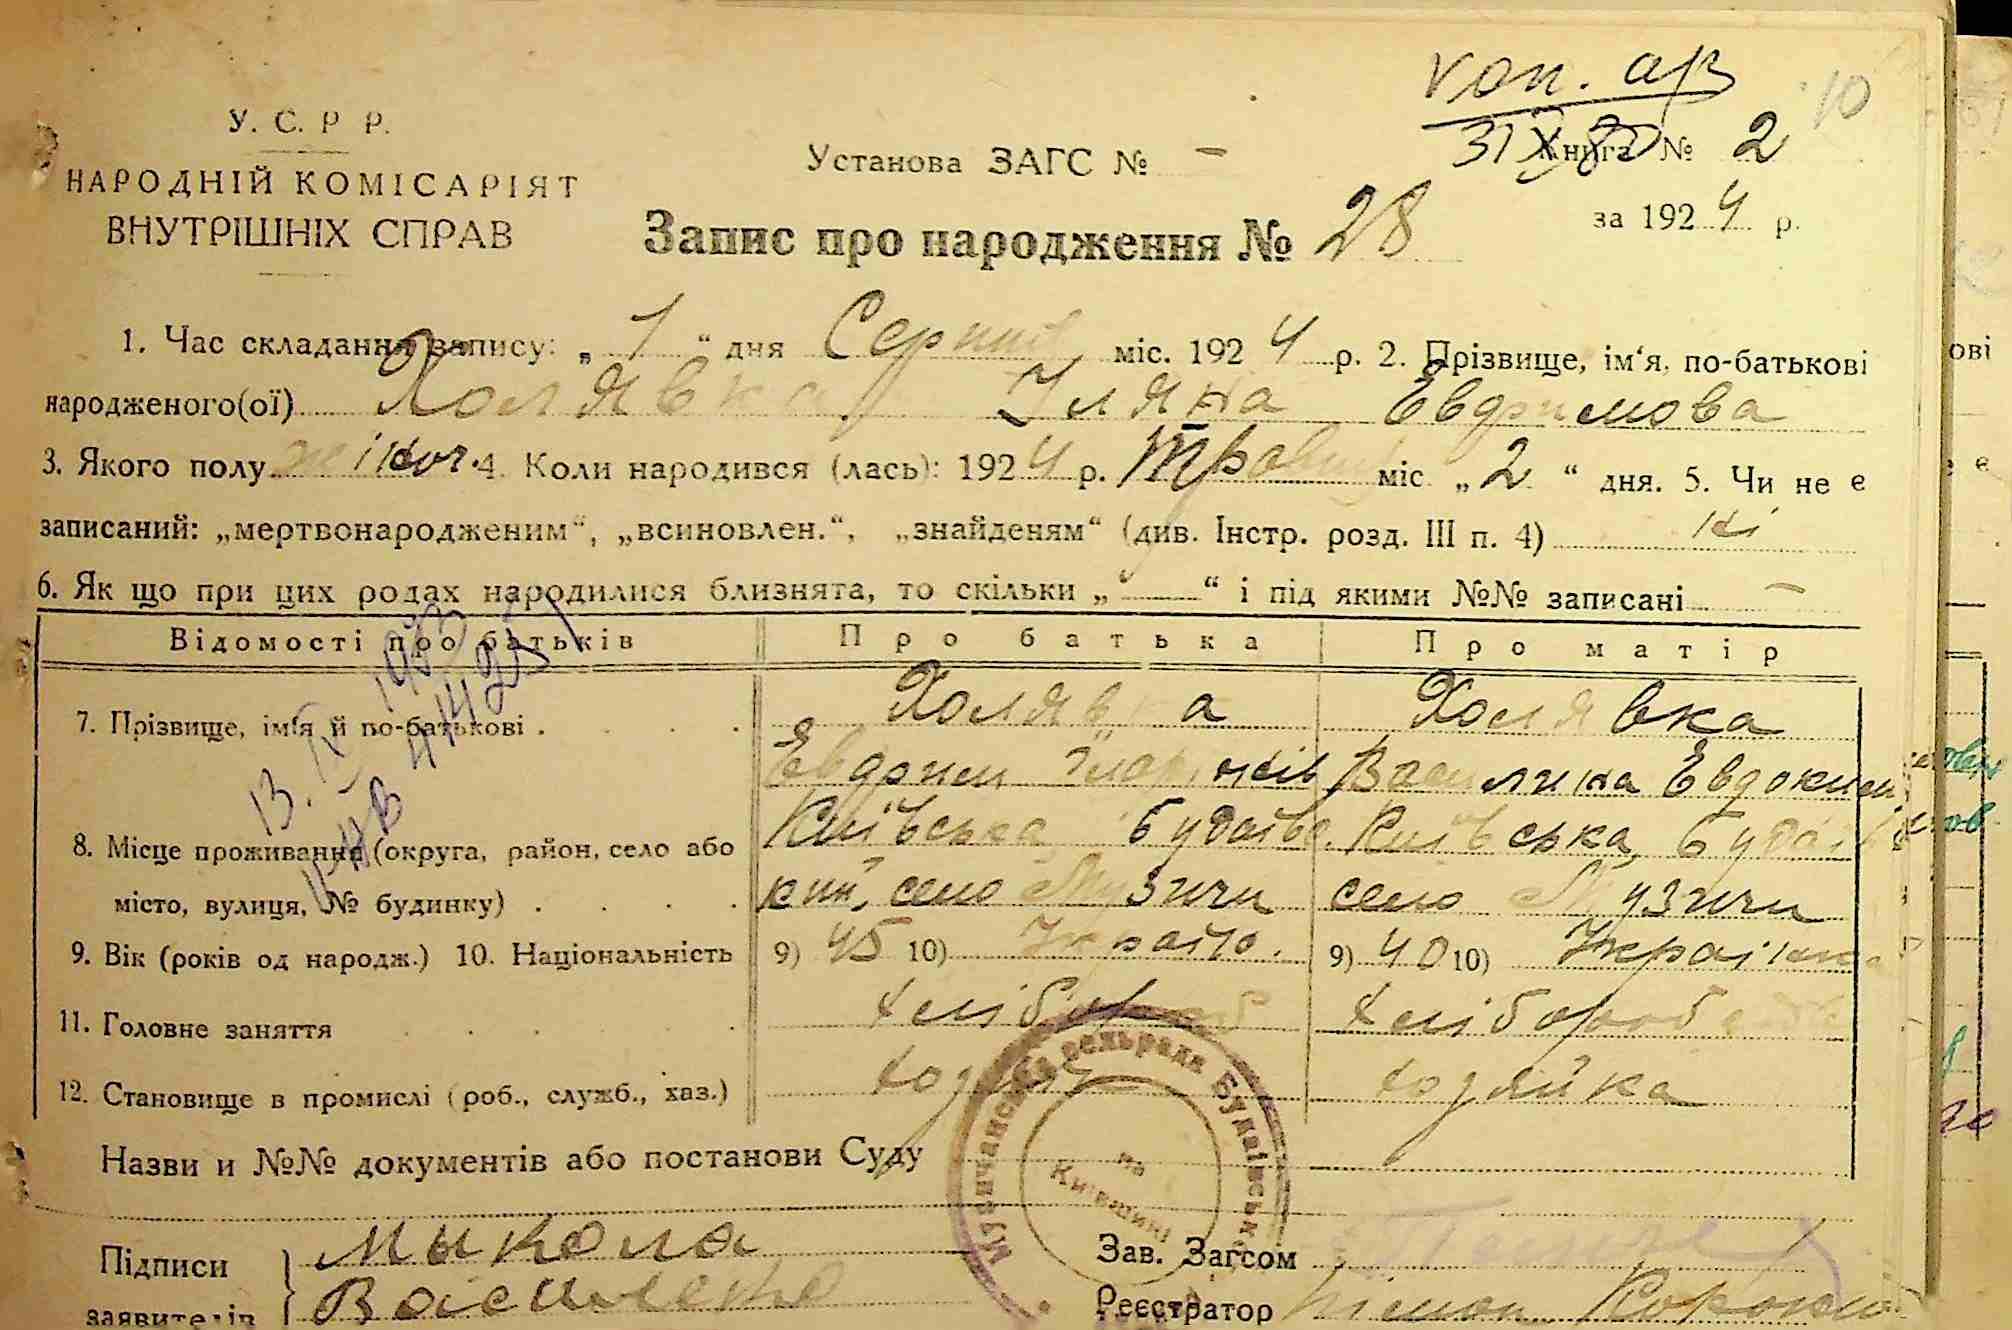 коп. ар
10
У. С. Р Р.
31 X 80
Книга № 2
Установа ЗАГС № -
НАРОДНІЙ КОМІСАРІЯТ
ВНУТРІШНІХ СПРАВ
за 1924 р.
Запис про народження № 28
1. Час складання запису: „ 1 “ дня Серпня міс. 1924 р. 2. Прізвище, ім‘я, по-батькові
народженого(ої) Холявка Уляна Євдимова
3. Якого полу жіноч. 4. Коли народився (лась): 1924 р. Травня міс. „ 2 “ дня. 5. Чи не є
записаний: „мертвонародженим“, „всиновлен.“, „знайденям“ (див. Інстр. розд. III п. 4) ні
6. Як що при цих родах народилися близнята, то скільки „ “ і під якими №№ записані -
Відомості про батьків Про батька Про матір
13. IX 1973
7. Прізвище, ім‘я й по-батькові . Холявка Холявка
Євдим Василина Евдоким
8. Місце проживання (округа, район, село або Київська, Будаївс. Київська, Будаїв
місто, вулиця, № будинку) . кий, село Музичи село Музичи
9. Вік (років од народж.) 10. Національність 9) 45 10) Україн. 9) 40 10) Українка
11. Головне заняття хлібороб хлібороб
12. Становище в промислі (роб., служб., хаз.) хозяїн хозяйка
Назви и №№ документів або постанови Суду
Музичанська сельрада Будаївськ
на Київщині
Підписи Мыкола Зав. Загсом
заявителів Реєстратор